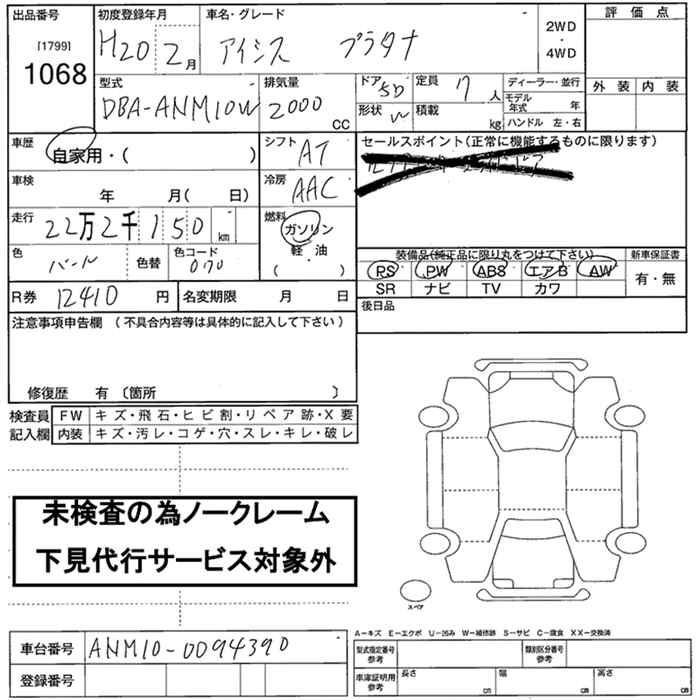 出品番号 初度登録年月 車名・グレード 評価点
[1799] H20 2月 アイシス プラタナ 2WD・4WD
1068
型式 排気量 ドア 5D 定員 7人 ディーラー・並行 外装 内装
DBA-ANM10W 2000cc 形状 W 積載 kg モデル年式 年
ハンドル 左・右
車歴 自家用・( ) シフト AT セールスポイント(正常に機能するものに限ります)
車検 年 月( 日) 冷房 AAC
走行 22万2千150km 燃料 ガソリン
軽油
( )
色 パール 色替 色コード 070 装備品(純正品に限り丸をつけて下さい) 新車保証書
PS PW ABS エアB AW 有・無
SR ナビ TV カワ
R券 12410円 名変期限 月 日 後日品
注意事項申告欄 (不具合内容等は具体的に記入して下さい)
修復歴 有 〔箇所 〕
検査員 FW キズ・飛石・ヒビ割・リペア跡・X要
記入欄 内装 キズ・汚レ・コゲ・穴・スレ・キレ・破レ
未検査の為ノークレーム
下見代行サービス対象外
スペア
A-キズ E-エクボ U-凹み W-補修跡 S-サビ C-腐食 XX-交換済
車台番号 ANM10-0094390 型式指定番号 参考 類別区分番号 参考
登録番号 車庫証明用 参考 長さ cm 幅 cm 高さ cm